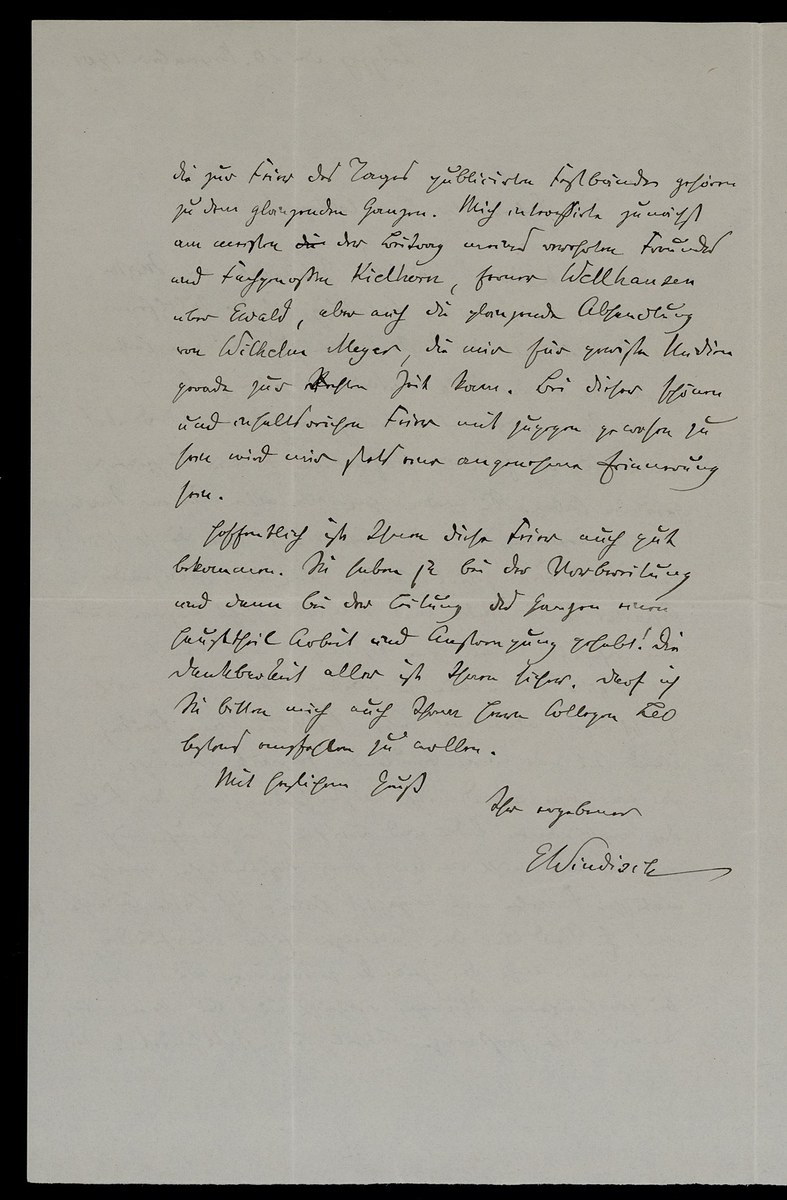 die zur Feier des Tages publicirten Festbände gehören
zu dem glänzenden Ganzen. Mich interessirte zunächst
am meisten die der Beitrag meines verehrten Freundes
und Fachgenossen Kielhorn, ferner Wellhausen
über Ewald, aber auch die glänzende Abhandlung
von Wilhelm Meyer, die mir für gewisse Studien
gerade zur rechten Zeit kam. Bei dieser schönen
und inhaltsreichen Feier mit zugegen gewesen zu
sein wird mir stets eine angenehme Erinnerung
sein.
Hoffentlich ist Ihnen diese Feier auch gut
bekommen. Sie haben ja bei der Vorbereitung
und dann bei der Leitung des Ganzen einen
Haupttheil Arbeit und Anstrengung gehabt! Die
Dankbarkeit aller ist Ihnen sicher. Darf ich
Sie bitten mich auch Ihrem Herrn Collegen Leo
bestens empfehlen zu wollen.
Mit herzlichem Gruß
Ihr ergebener
EWindisch